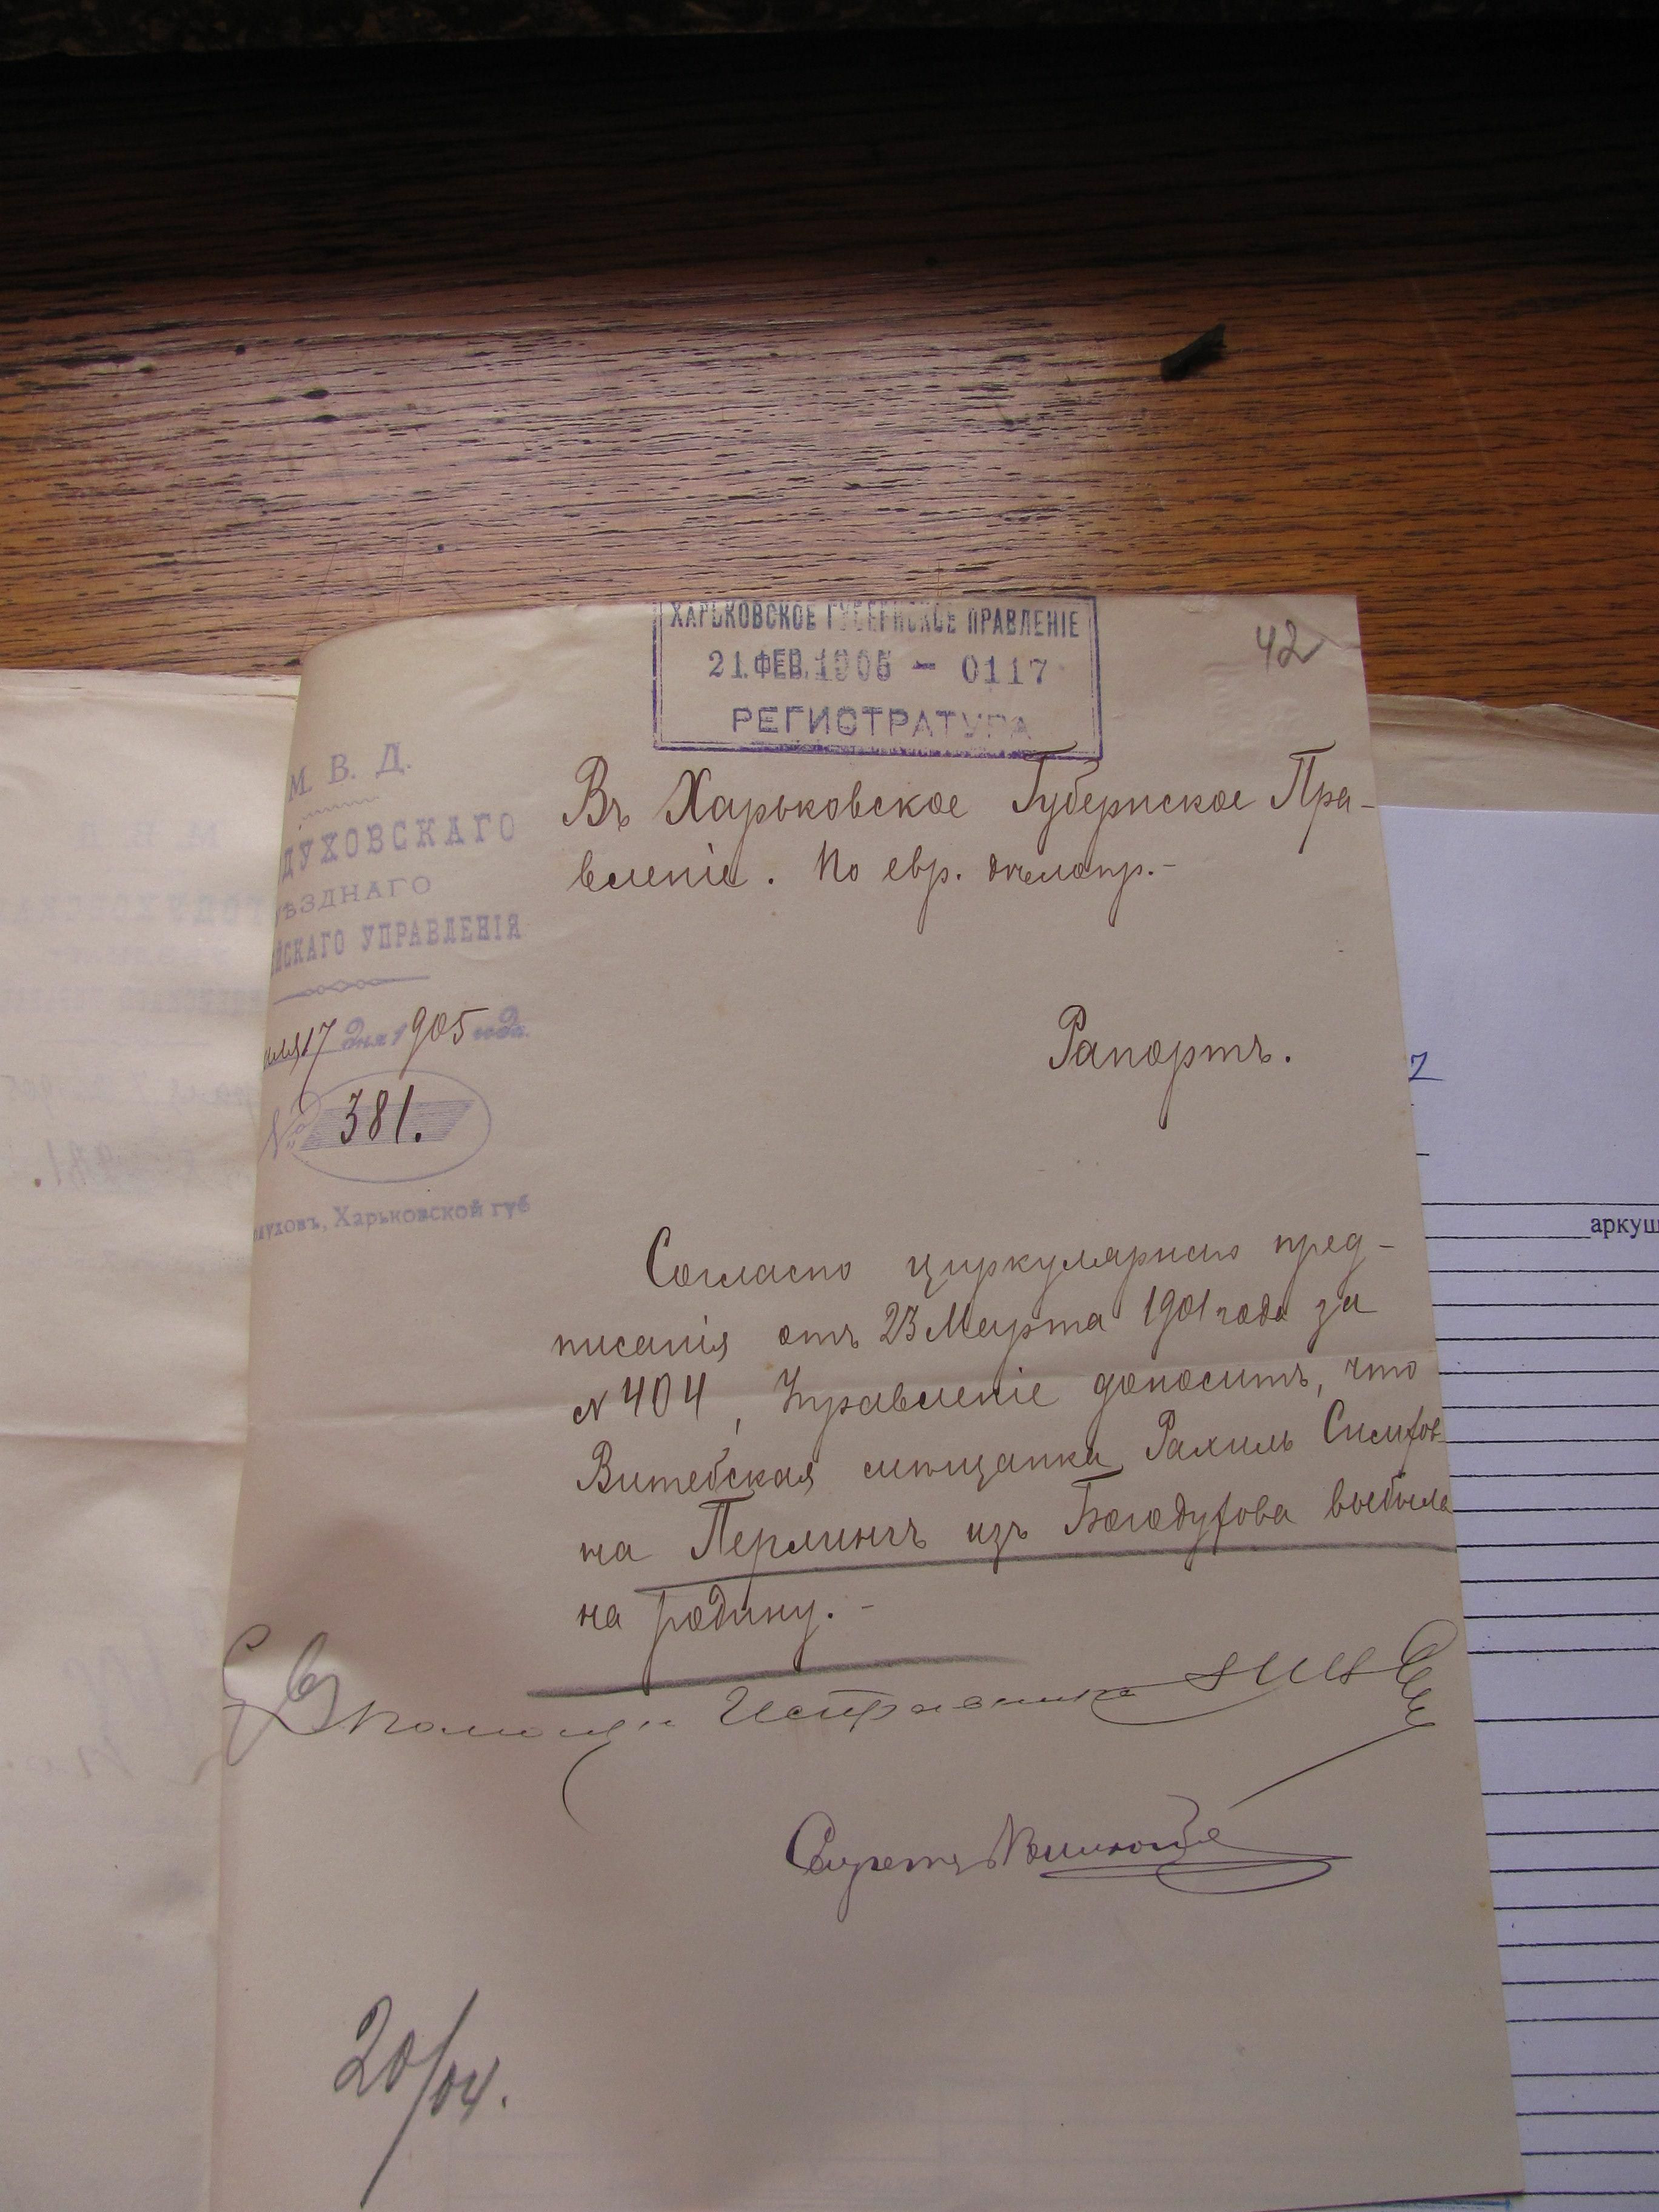 ХАРЬКОВСКОЕ ГУБЕРНСКОЕ ПРАВЛЕНІЕ
21.ФЕВ.1905 - 0117
РЕГИСТРАТУРА
42
М. В. Д.
ДУХОВСКАГО
УѢЗДНАГО
ЙСКАГО УПРАВЛЕНІЯ
17 дня 1905 года.
№ 381.
духовъ, Харьковской губ
Въ Харьковское Губернское Пра-
вленіе. По евр. дѣлопр.-
Рапортъ.
Согласно циркулярнаго пред-
писанія отъ 23 Марта 1901 года за
№ 404, Управленіе доноситъ, что
Витебская мѣщанка Рахиль
на Перлинъ изъ Богодухова выбыла
на родину. -
Помощн Исправника
Секретарь
20/04.
аркуш